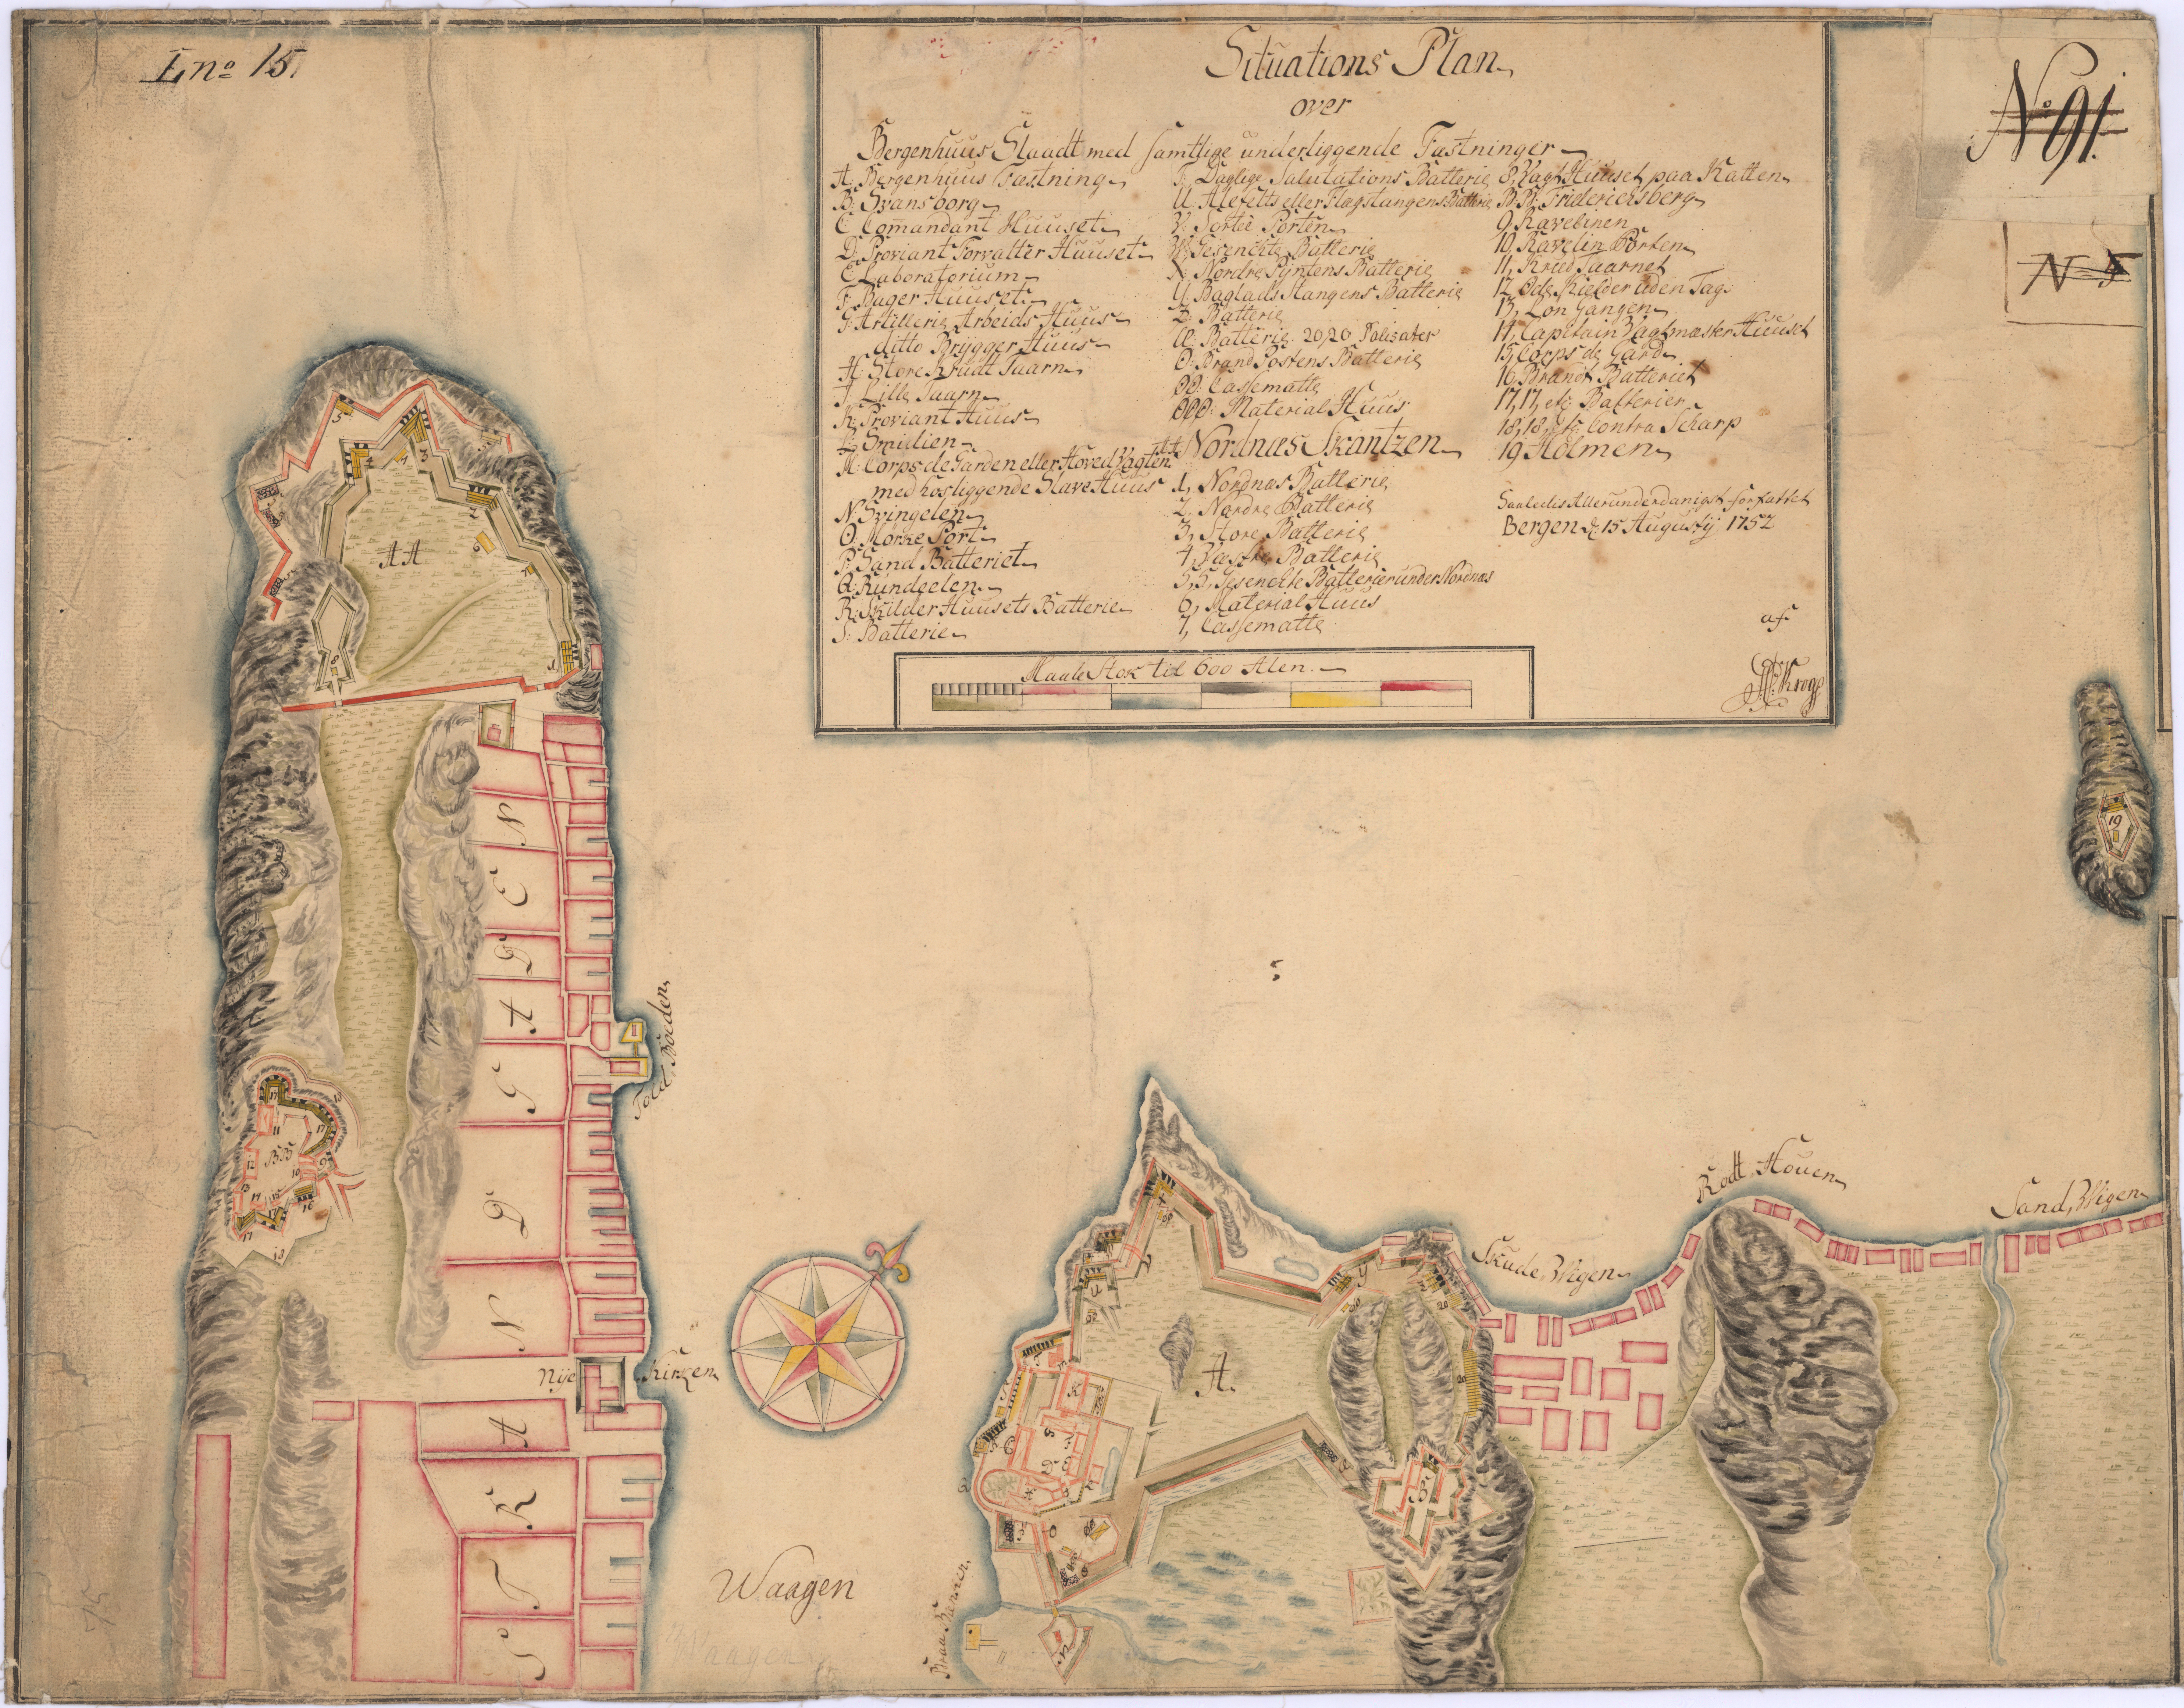 L no 15
No 91.
N 5
Situations Plan
over
Bergenhuus Slaadt med samtlige underliggende Fæstninger
A: Bergenhuus Fæstning
B: Svansborg
C Comandant Huuset
D: Proviant Forvalter Huuset
E Laboratorium
F: Bager Huuset
G: Artillerie Arbeids Huus
ditto Brygger Huus
H: Store Krudt Taarn
I Lille Taarn
K: Proviant Huus
L: Smidien
M: Corps de Garden eller Hoved Vagten
med hosliggende Slave Huus
N: Svingelen
O: Mörke Port
P: Sand Batteriet
Q: Rundeelen
R: Skilder Huusets Batterie
S: Batterie
T: Daglige Salutations Batterie
U Alefelts eller Flagstangens Batterie
V: Sortie Porten
W: Gesenckte Batterie
X: Nordre Pyntens Batterie
Y: Baglads Stangens Batterie
Z: Batterie
Æ: Batterie 20,20 Palisater
Ö: Brand Postens Batterie
ÖÖ: Cassematte
ÖÖÖ: Material Huus
AA Nordnæs Skantzen
1, Nordnæs Batterie
2, Nordre Batterie
3, Store Batterie
4, Vestre Batterie
5,5, Gesenckte Batterier under Nordnæs
6, Material Huus
7, Cassematte
8, Vagt Huuset paa Katten
B.B. Friderichsberg
9, Ravelinen
10, Ravelin Porten
11, Krud Taarnet
12, Öde Kielder uden Tag
13, Lön Gangen
14, Capitain Vagtmæster Huuset
15, Corps de Gard
16, Brandt Batteriet
17,17, etc Batterier
18,18, etc Contra Scharp
19 Holmen
Saaledis Allerunderdanigst forfattet
Bergen d: 15 Augustij 1752
af
Krog
Maale Stok til 600 Alen
5
3
4
1
2
6
7
AA
8
1
5
19
N
E
D
A
G
D
N
A
K
T
S
Told Boeden
17
11
17
BB
12
10
9
13
14
15
16
17
17
18
Nye Kirken
Waagen
Waagen
A.
K
B
Y
20
Z
20
20
Skude Wigen
Rodt Houen
Sand Wigen
N